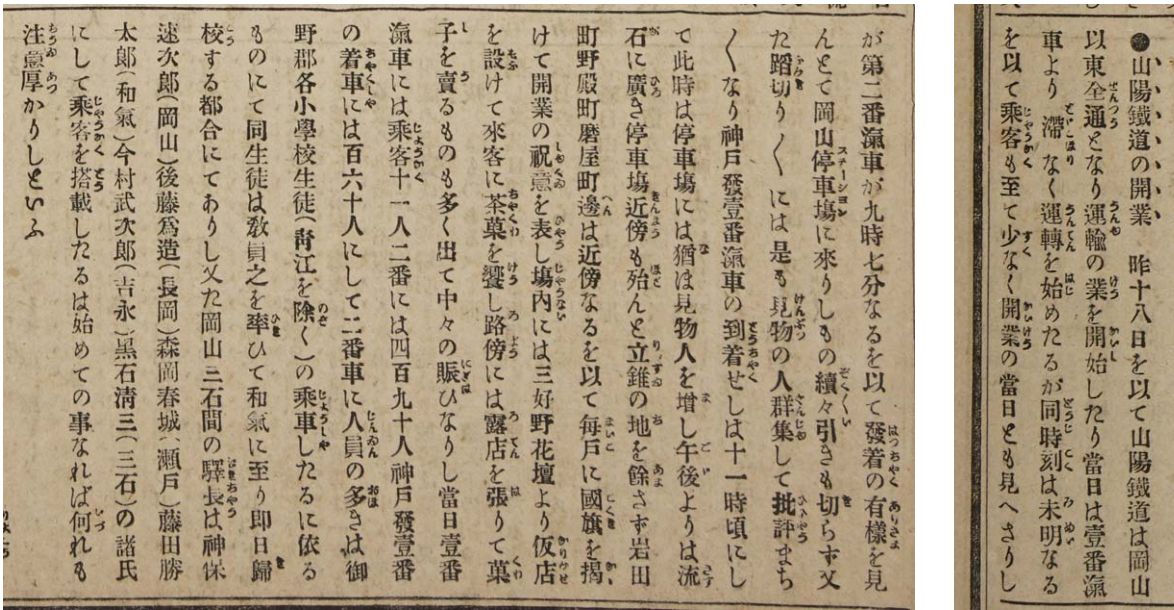 ●山陽鐵道の開業　昨十八日を以て山陽鐵道は岡山
以東全通となり運輸の業を開始したり當日は壹番滊
車より滯なく運轉を始めたるが同時刻は未明なる
を以て乘客も至て少なく開業の當日とも見へさりし
が第二番滊車が九時七分なるを以て發着の有樣を見
んとて岡山停車塲に來りしもの續々引きも切らず又
た蹈切り〱には是も見物の人群集して批評まち
〱なり神戸發壹番滊車の到着せしは十一時頃にし
て此時は停車塲には猶ほ見物人を增し午後よりは流
石に廣き停車塲近傍も殆んと立錐の地を餘さず岩田
町野殿町磨屋町邊は近傍なるを以て毎戸に國旗を揭
けて開業の祝意を表し塲内には三好野花壇より仮店
を設けて來客に茶菓を饗し路傍には露店を張りて菓
子を賣るものも多く出て中々の賑ひなりし當日壹番
滊車には乘客十一人二番には四百九十人神戸發壹番
の着車には百六十人にして二番車に人員の多きは御
野郡各小學校生徒(靑江を除く)の乘車したるに依る
ものにて同生徒は敎員之を率ひて和氣に至り即日歸
校する都合にてありし又た岡山三石間の驛長は神保
速次郎(岡山)後藤爲造(長岡)森岡春城(瀬戸)藤田勝
太郎(和氣)今村武次郎(吉永)黒石淸三(三石)の諸氏
にして乘客を搭載したるは始めての事なれば何れも
注意厚かりしといふ